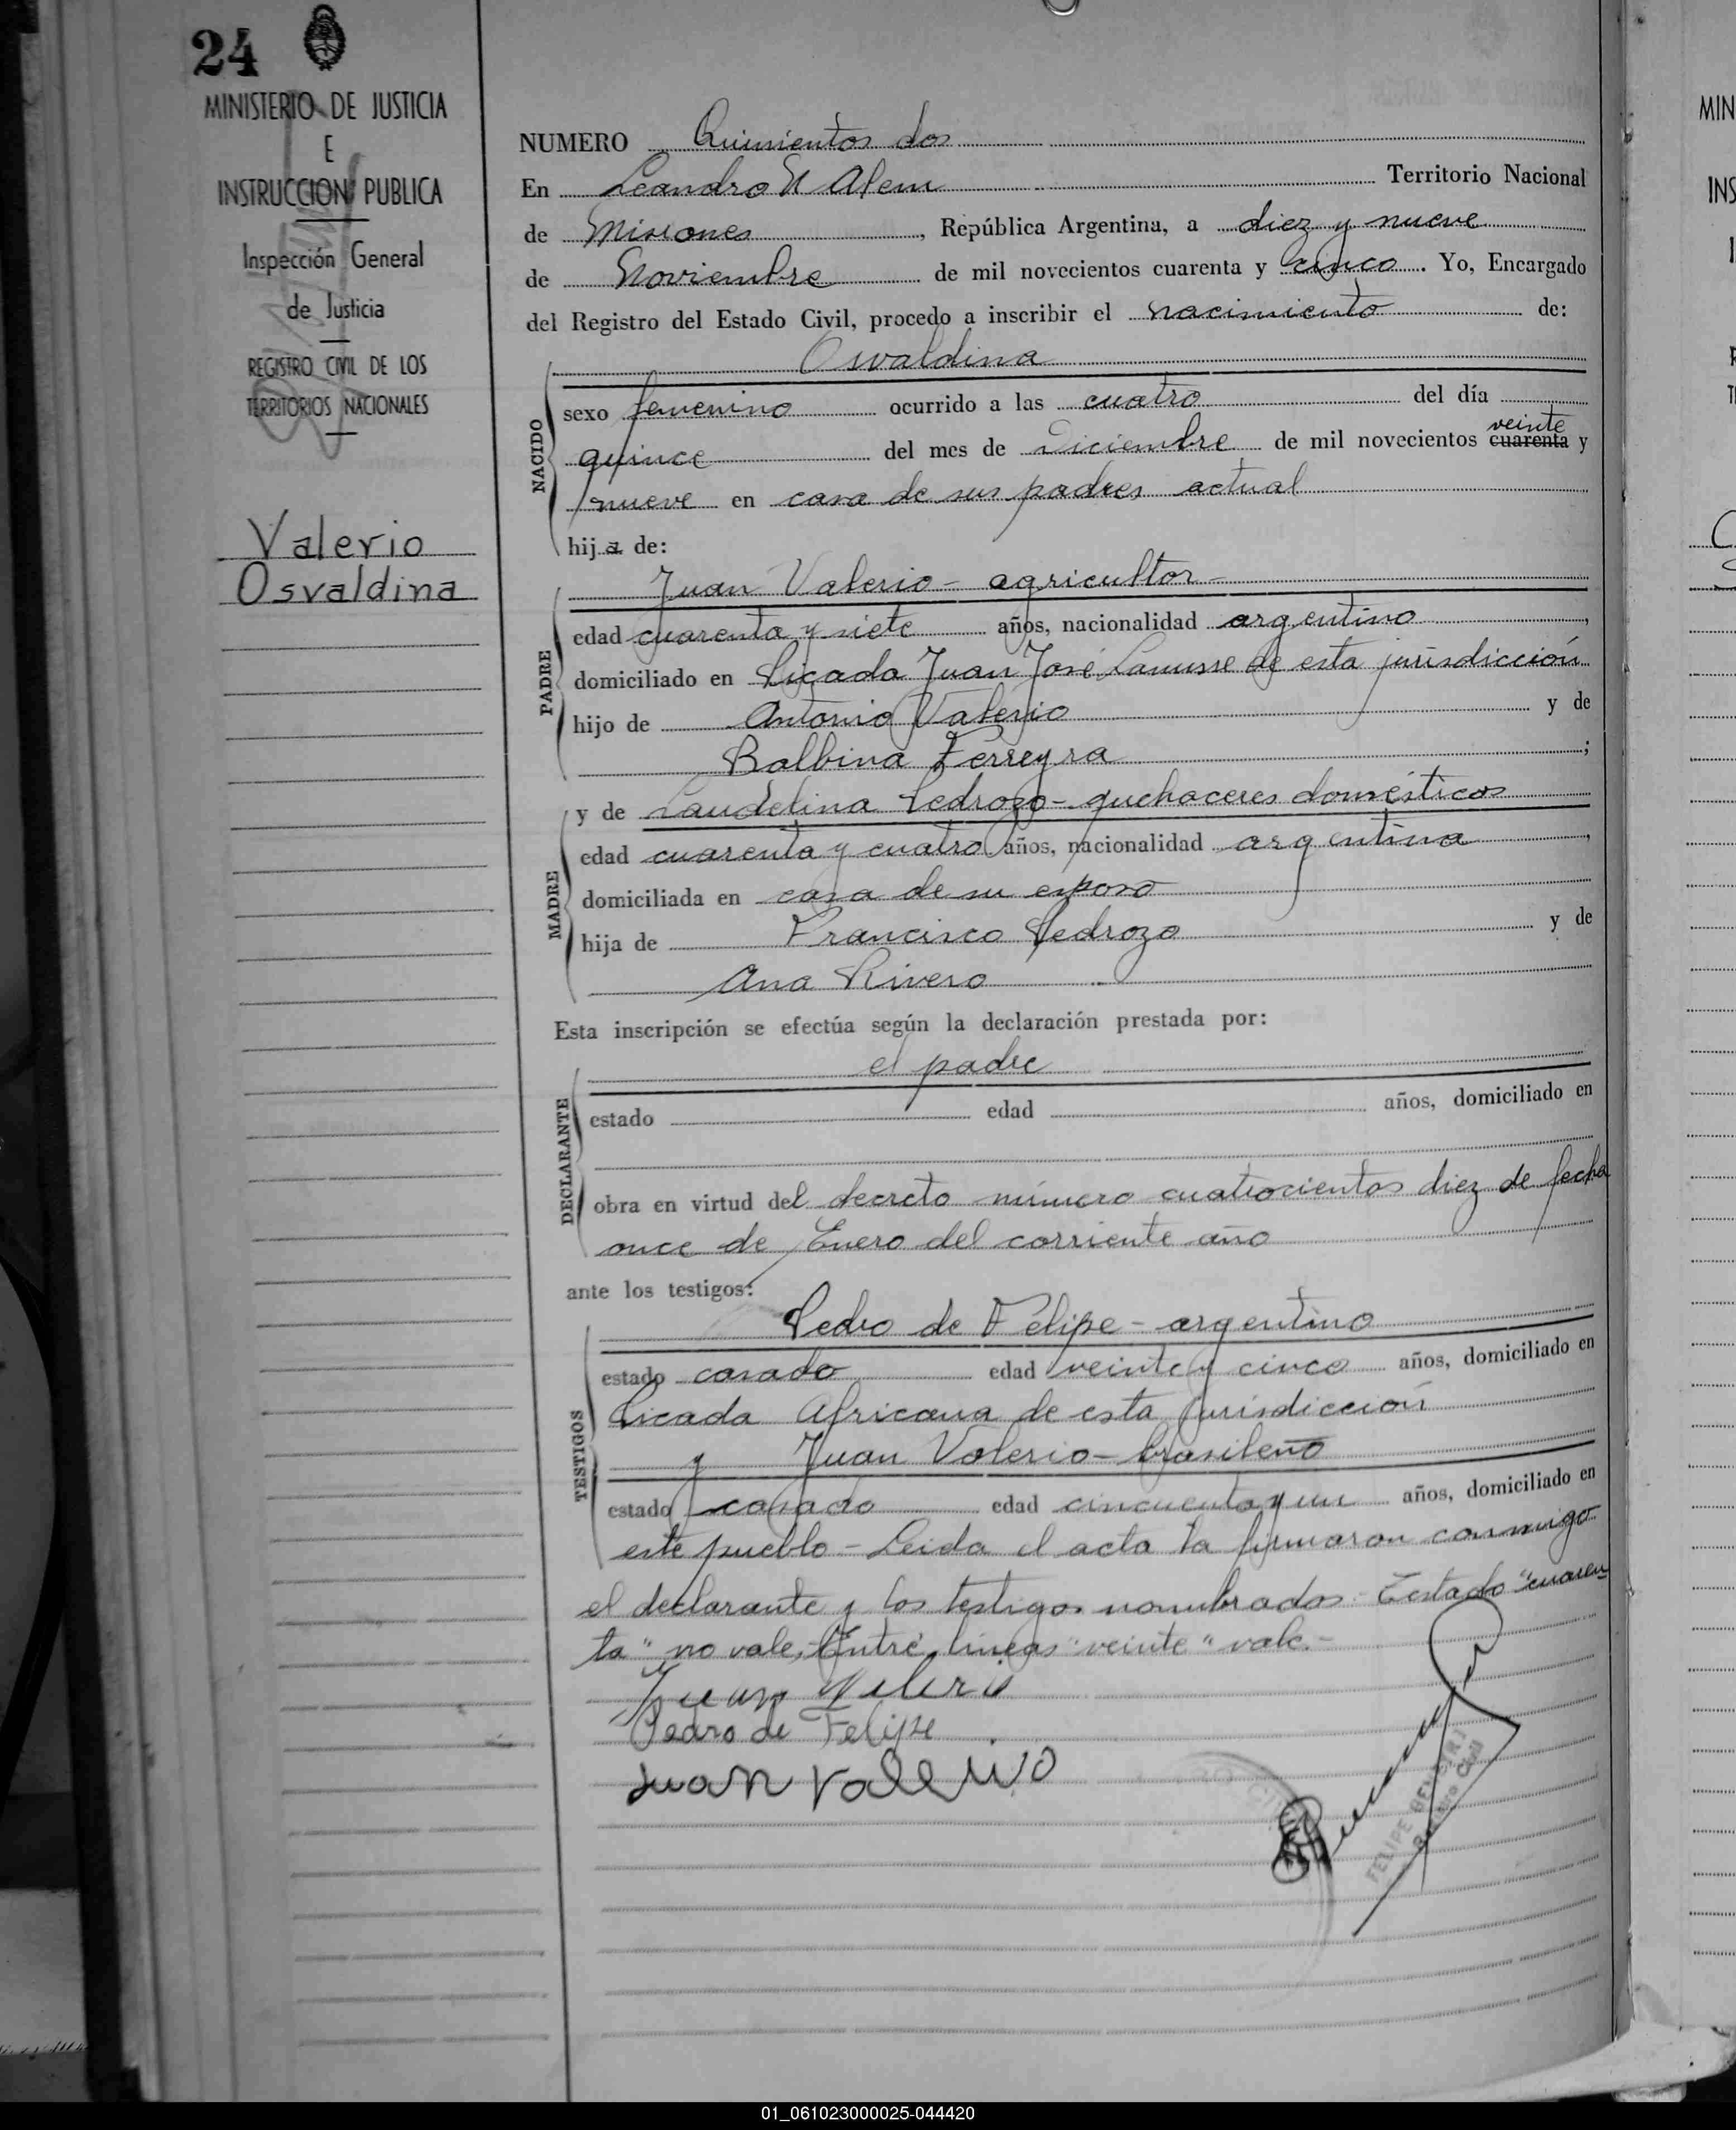 24
MINISTERIO DE JUSTICIA
E
INSTRUCCION PUBLICA
Inspección General
de Justicia
REGISTRO CIVIL DE LOS
TERRITORIOS NACIONALES
Valerio
Osvaldina
NUMERO Quinientos dos
En Leandro N Alem Territorio Nacional
de Misiones, República Argentina, a diez y nueve
de Noviembre de mil novecientos cuarenta y cinco. Yo, Encargado
del Registro del Estado Civil, procedo a inscribir el nacimiento de:
Osvaldina
NACIDO
sexo femenino ocurrido a las cuatro del día
veinte
quince del mes de Diciembre de mil novecientos cuarenta y
nueve en casa de sus padres actual
hija de:
PADRE
Juan Valerio - agricultor -
edad cuarenta y siete años, nacionalidad argentino,
domiciliado en Picada Juan José Lanusse de esta jurisdicción
hijo de Antonio Valerio y de
Balbina Ferreyra;
MADRE
y de Laudelina Pedrozo - quehaceres domésticos
edad cuarenta y cuatro años, nacionalidad argentina,
domiciliada en casa de su esposo
hija de Francisco Pedrozo y de
Ana Rivero
Esta inscripción se efectúa según la declaración prestada por:
DECLARANTE
el padre
estado edad años, domiciliado en
obra en virtud del decreto número cuatrocientos diez de fecha
once de Enero del corriente año
ante los testigos:
TESTIGOS
Pedro de Felipe - argentino
estado casado edad veinte y cinco años, domiciliado en
Picada Africana de esta jurisdicción
y Juan Valerio - brasileño
estado casado edad cincuenta y un años, domiciliado en
este pueblo - Leida el acta la firmaron conmigo
el declarante y los testigos nombrados - Testado "cuaren
ta" no vale, Entre líneas "veinte" vale. -
Juan Valerio
Pedro de Felipe
Juan Valerio
FELIPE
01_061023000025-044420